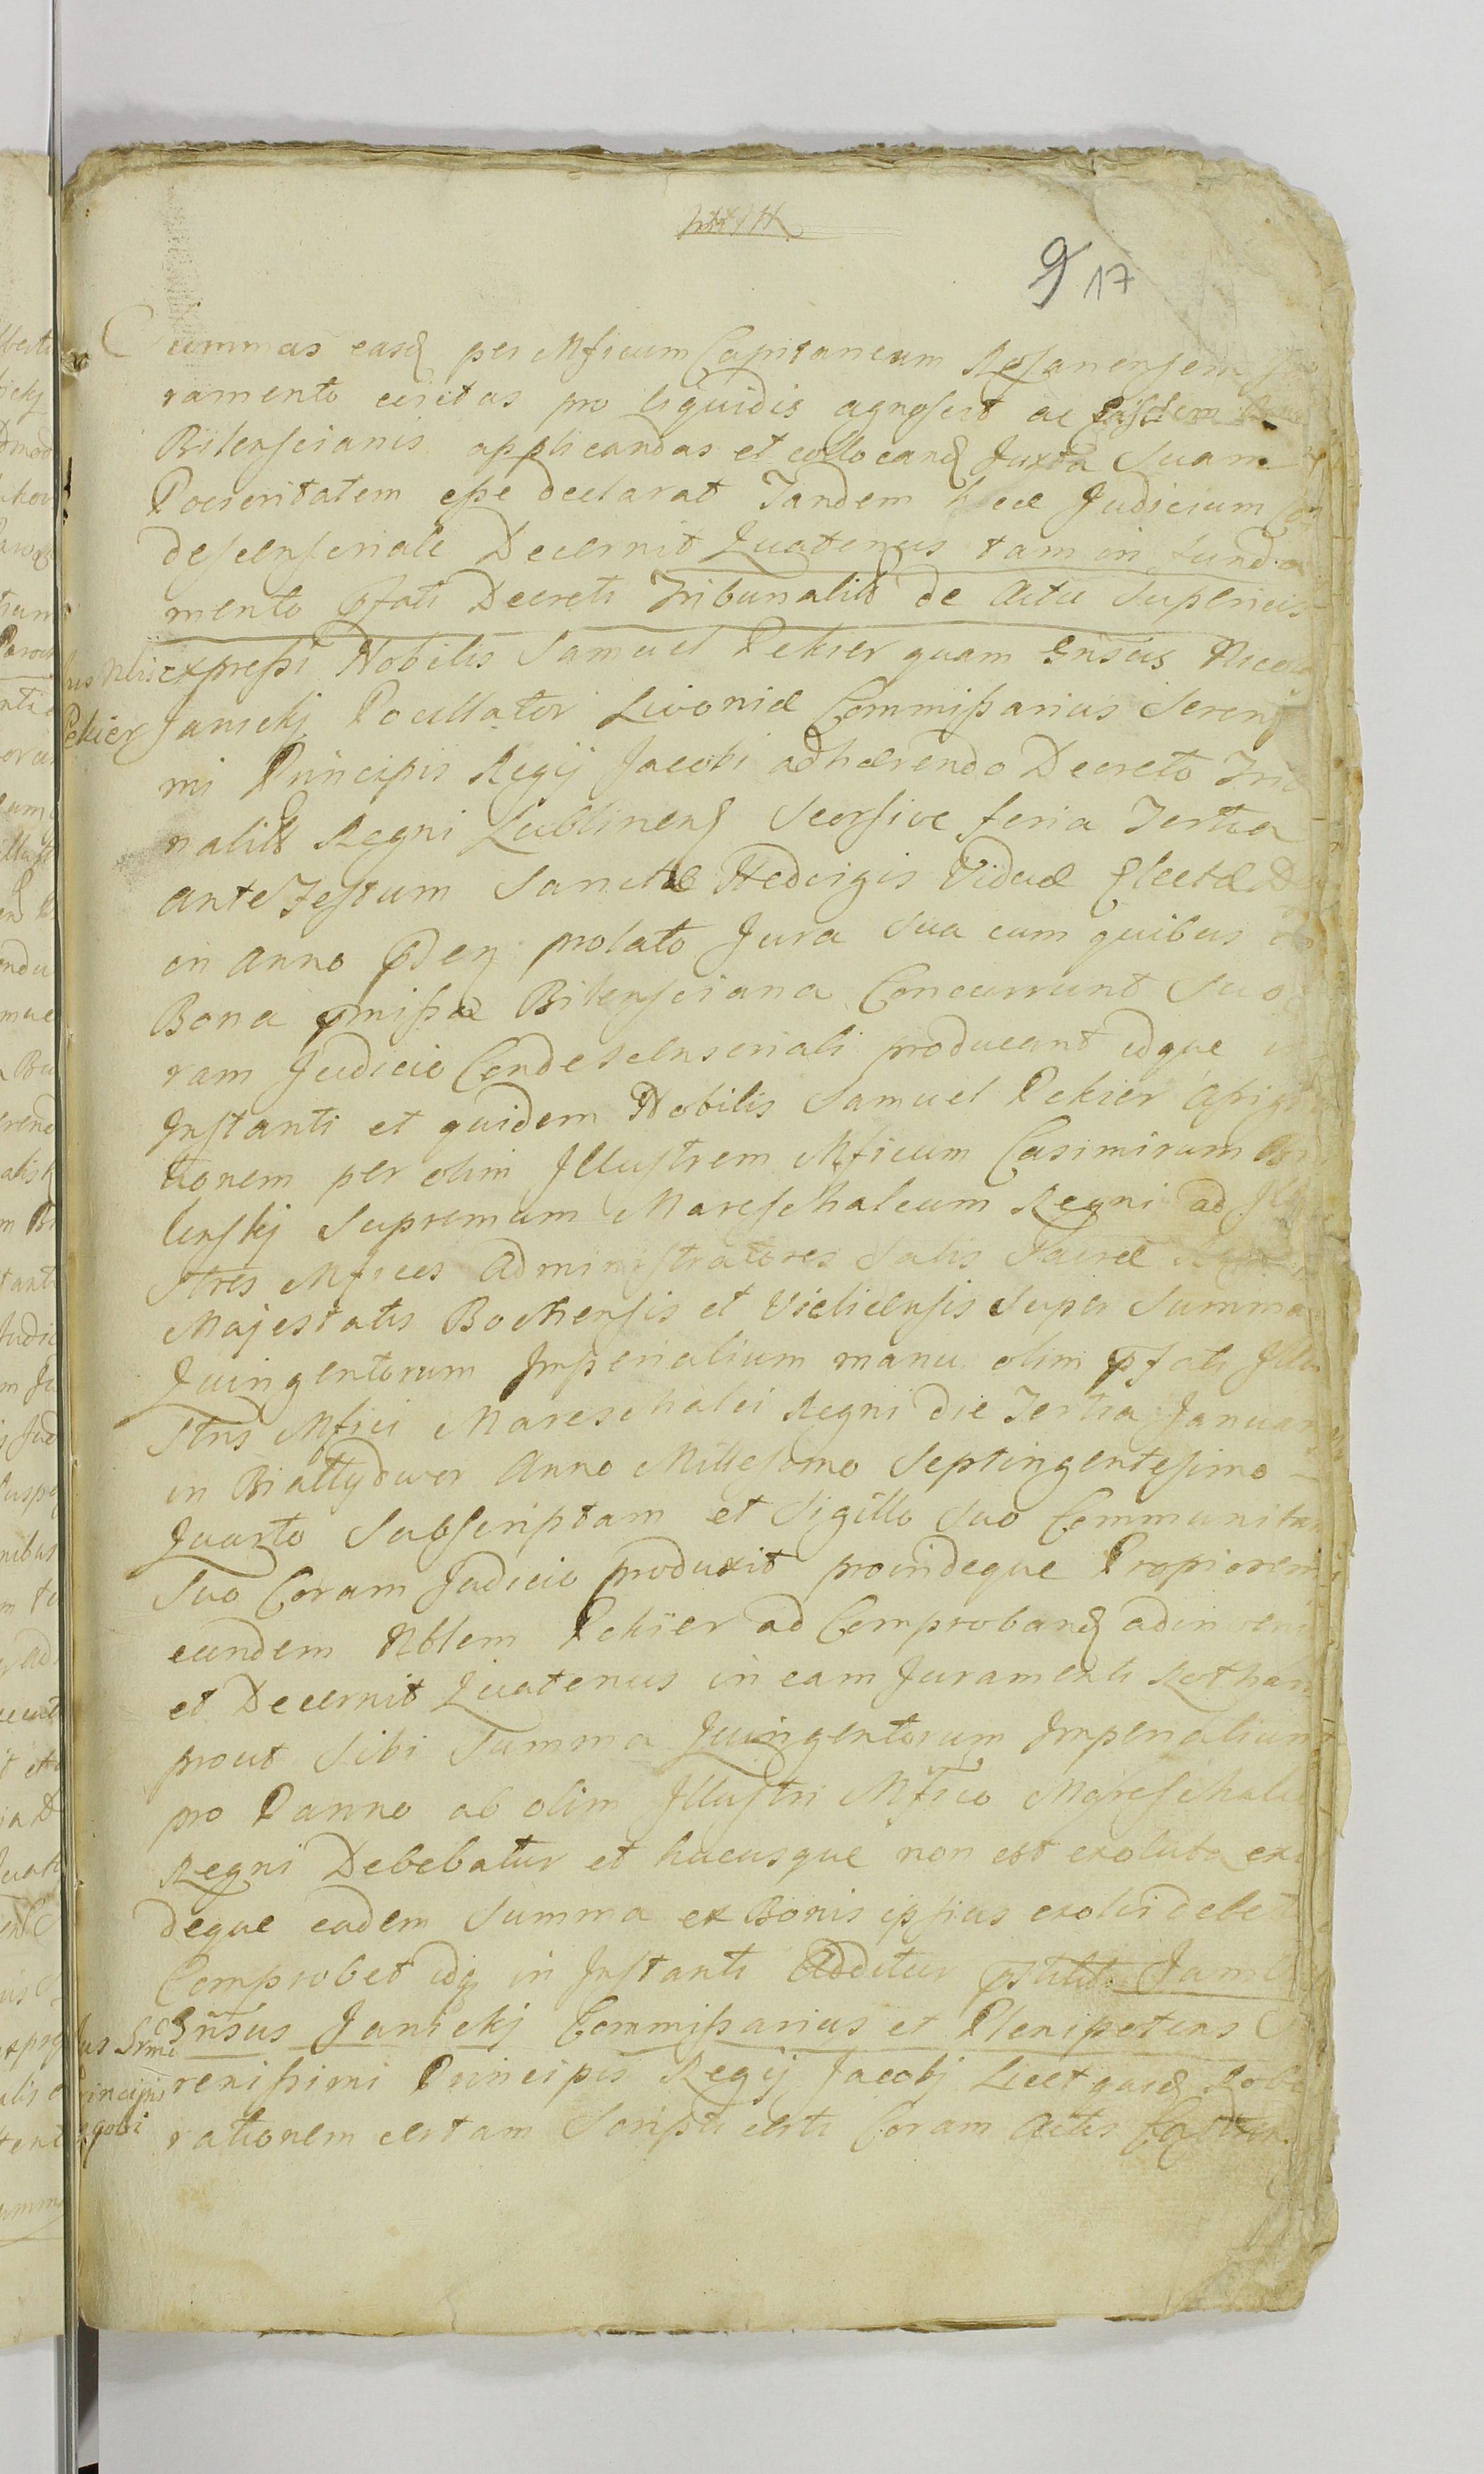 9 17
Summas easq per Mficum Capitaneum Rosanensem
ramento evictas pro liquidis agnoscit ac eisdem
Bilenscianis applicandas et collocand Juxta Suam
Poeieritatem esse declarat Tandem hocce Judicium
descensoriale Decernit Quatenus tam in funda
mento Pfati Decreti Tribunalis de Actu Superius
expressi Nobilis Samuel Pekier quam Gnsus
Janickj Pocillator Livoniæ Commissarius Sereniss
mi Principis Regij Jacobi adhærendo Decreto
nalis Regni Lublinens Seorsive feria Tertia
ante Festum Sanctæ Hedvigis Viduæ Electæ
in Anno pdey prolato Jura Sua cum quibus
Bona pmissa Bilensciana Concurrunt
ram Judicio Condescensoriali producant idque
Instanti et quidem Nobilis Samuel Pekier
tionem per olim Illustrem Mficum Casimirum
lenskj Supremum Mareschalcum Regni ad
stres Mficos Administratores Salis Sacræ
Majestatis Bochensis et Vielicensis Super Summa
Quingentorum Imperialium manu olim pfati
stris Mfici Mareschalci Regni die Tertia Januar
in Biallydwor Anno Millesimo Septingentesimo
Quarto Subscriptam et Sigillo Suo Communitam
Suo Coram Judicio produxit proindeque Propiorem
eundem Nblem Pekier ad Comproband adinveni
et Decernit Quatenus in eam Juramenti Rotham
prout Sibi Summa Quingentorum Imperialium
pro Panno ab olim Illustri Mfico Mareschalco
Regni Debebatur et hucusque non est exoluta
deque eadem Summa ex Bonis ipsius exolvi debet
Comprobet idq in Instanti Additur
Gnsus Janickj Commissarius et Plenipotens
renissimi Principis Regij Jacobj Licet quasd
rationem certam Scripti certi Coram Actis
Pekier
Principis